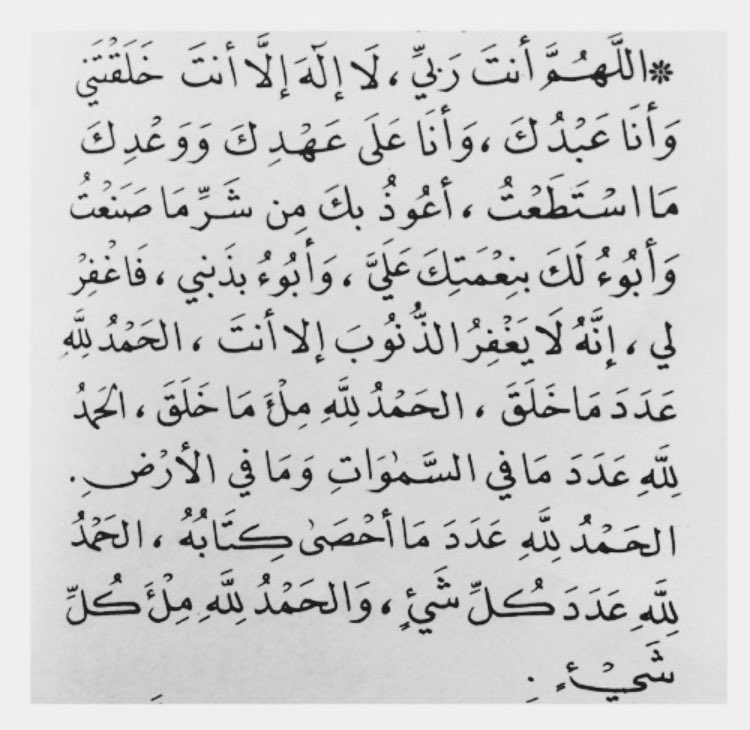 * اللَّهُمَّ أنتَ رَبِّي ، لَا إلَٰهَ إلَّا أنتَ خَلَقْتَني
وَأنَا عَبْدُكَ ، وَأنَا عَلَى عَهْدِكَ وَوَعْدِكَ
مَا اسْتَطَعْتُ ، أعُوذُ بكَ مِن شَرِّ مَا صَنَعْتُ
وَأبُوءُ لَكَ بنِعْمَتِكَ عَلَيَّ ، وَأبُوءُ بذَنبي ، فَاغْفِرْ
لي ، إنَّهُ لَا يَغْفِرُ الذُّنُوبَ إلا أنتَ ، الحَمْدُ لِلَّهِ
عَدَدَ مَا خَلَقَ ، الحَمْدُ لِلَّهِ مِلْءَ مَا خَلَقَ ، الحَمْدُ
لِلَّهِ عَدَدَ مَا في السَّمٰوَاتِ وَمَا في الأرْضِ .
الحَمْدُ لِلَّهِ عَدَدَ مَا أحْصَىٰ كِتَابُهُ ، الحَمْدُ
لِلَّهِ عَدَدَ كُلِّ شَيْءٍ ، وَالحَمْدُ لِلَّهِ مِلْءَ كُلِّ
شَيْءٍ .